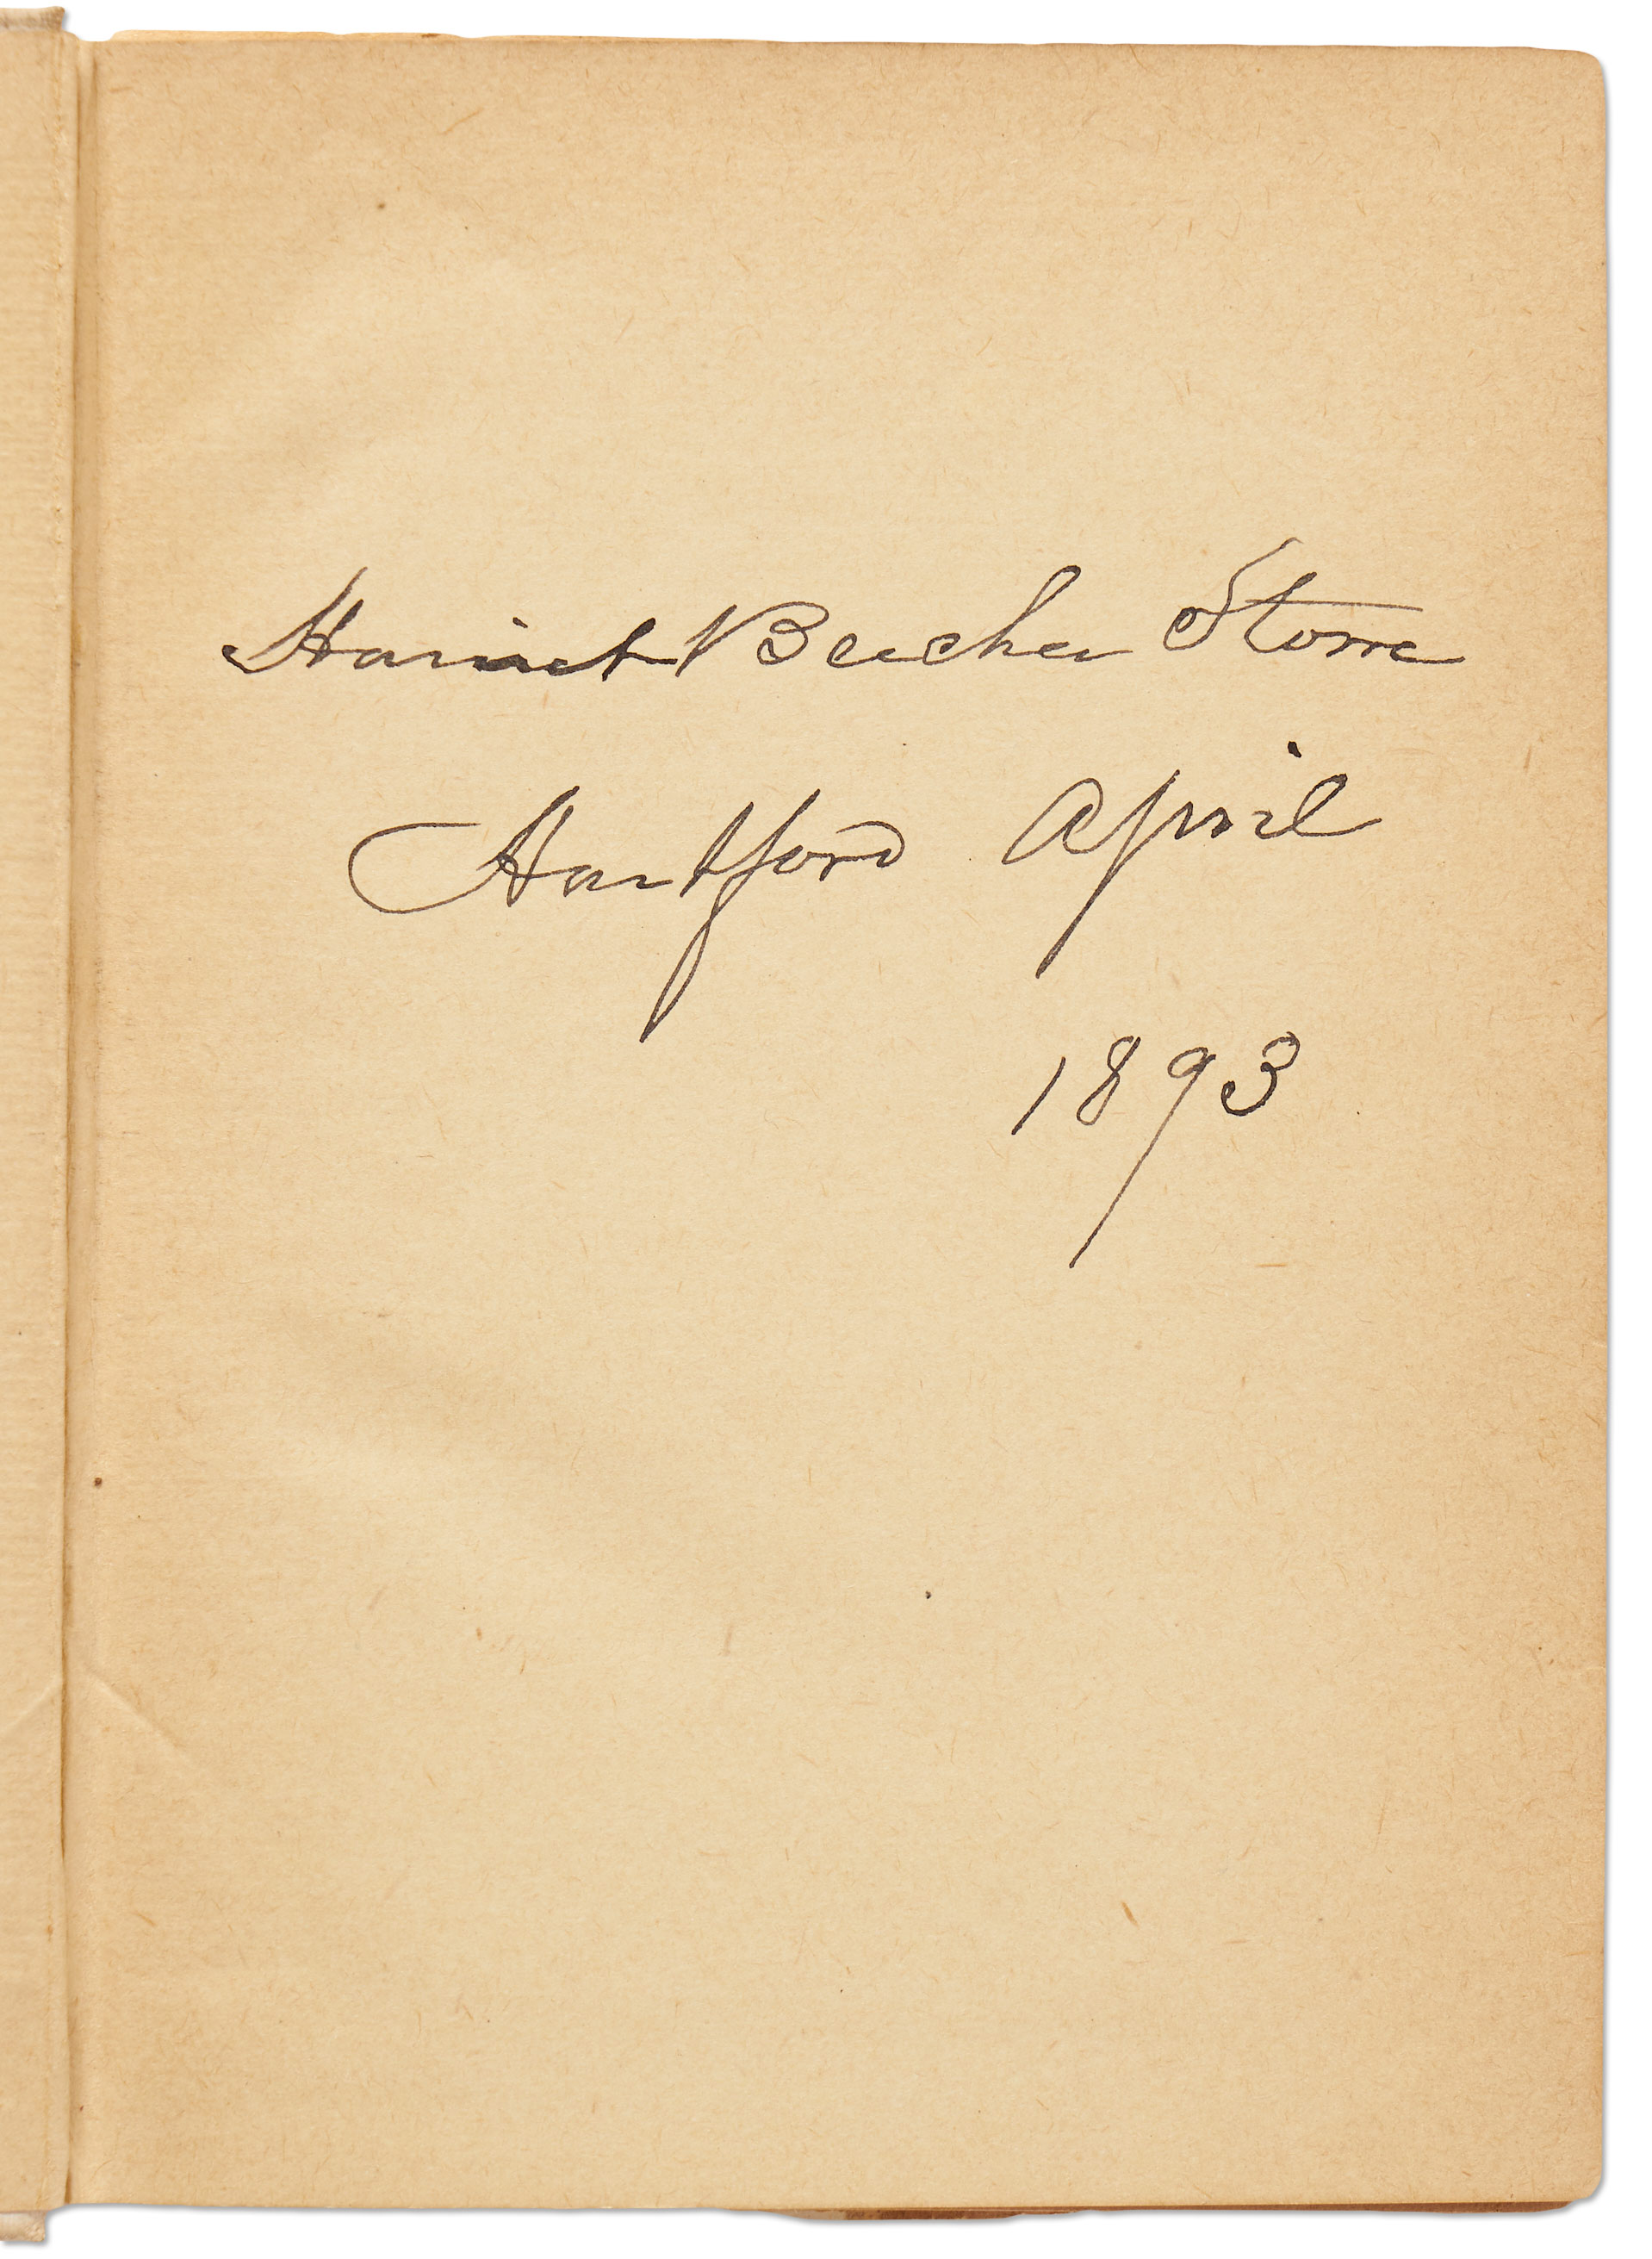 Harriet Beecher Stowe
Hartford April
1893